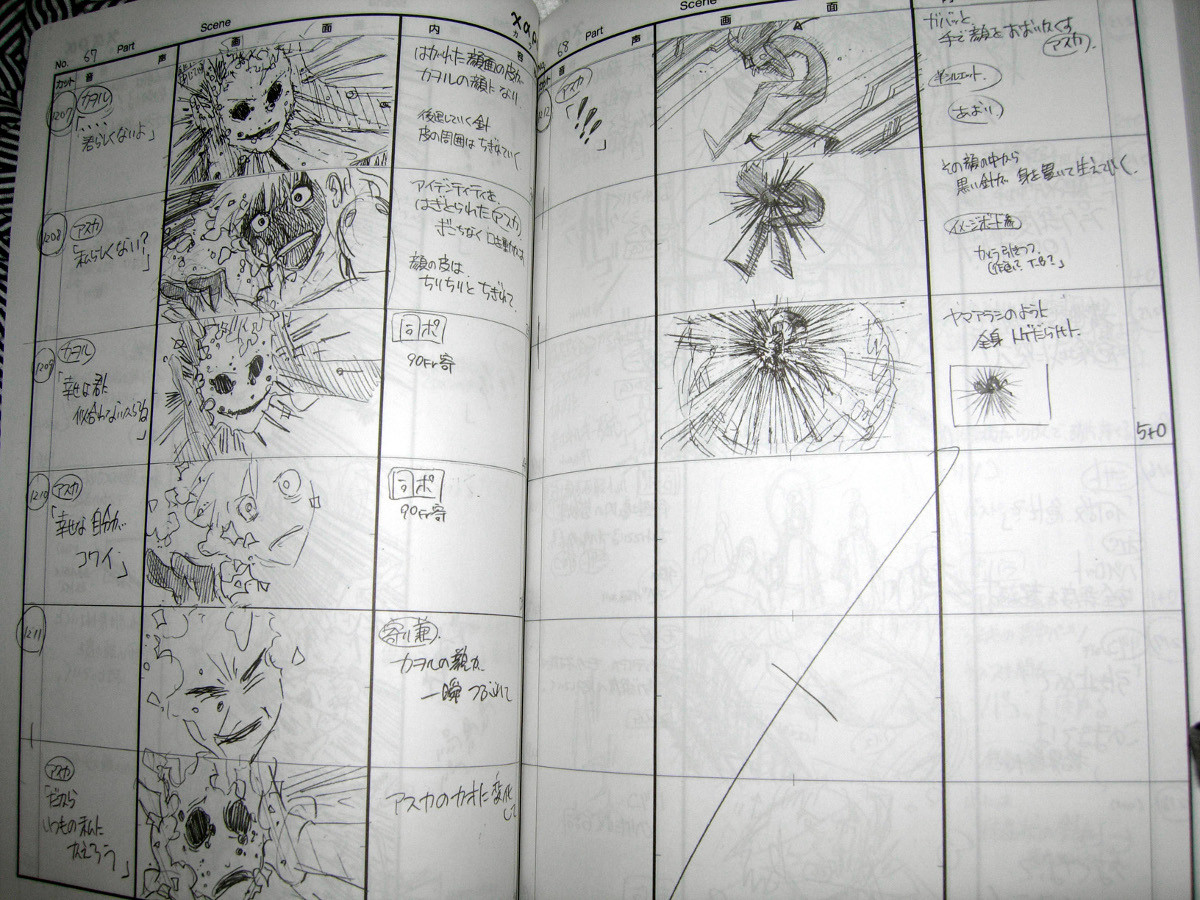 No. 67
Part
Scene
カット
音
声
画
面
内
容
1207
カヲル
「君らしくないよ」
はがれた顔面の皮が
カヲルの顔となり
後退していく針
皮の周囲は ちぎれていく
1208
アスカ
「私らしくない?」
アイデンティティを
はぎとられた アスカ
ぎこちなく
顔の皮は
ちりちりと ちぎれて
1209
カヲル
「幸せな君に
似合わないからね」
同ポ
90Fr寄
1210
アスカ
「幸せな自分が
コワイ」
同ポ
90Fr寄
1211
寄り兼
カヲルの顔が
一瞬
アスカ
「だから
いつもの私に
かえろう」
アスカのカオに変化して
68
Part
Scene
音
声
画
面
1212
アスカ
「!!!」
ガバッと
手で顔を おおいかくす
アスカ
半シルエット
あおり
その顔の中から
黒い針が 身を貫いて生えていく
イメージボード有
カメラ引きつつ
ヤマアラシのように
全身 トゲだらけに
5+0